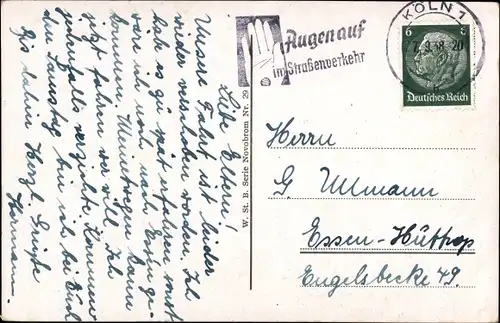 Liebe Eltern!
Unsere Fahrt ist leider
wieder verschoben worden. Ich
hab es zu spät erfahren sonst
wäre ich noch nach Essen ge-
kommen. Meinetwegen kann
jetzt fahren wer will. Ich
jedenfalls verzichte. Komme
am Samstag bin ich bei Euch
Bis dahin Herzl. Grüße
Hermann
W. St. B. Serie Novobrom Nr. 29
Augen auf
im Straßenverkehr
KÖLN 1
7.9.38.20
6 6
Deutsches Reich
Herrn
G. Ullmann
Essen-Hüttrop
Engelsbecke 49.